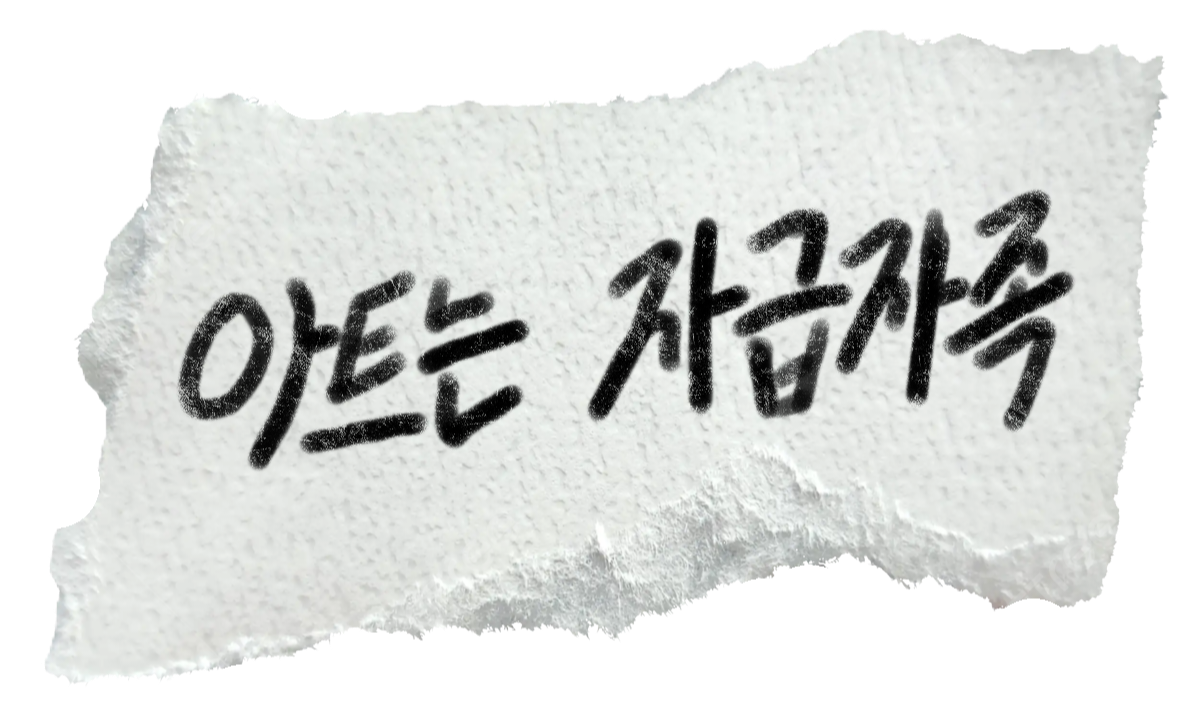 아트는 자급자족